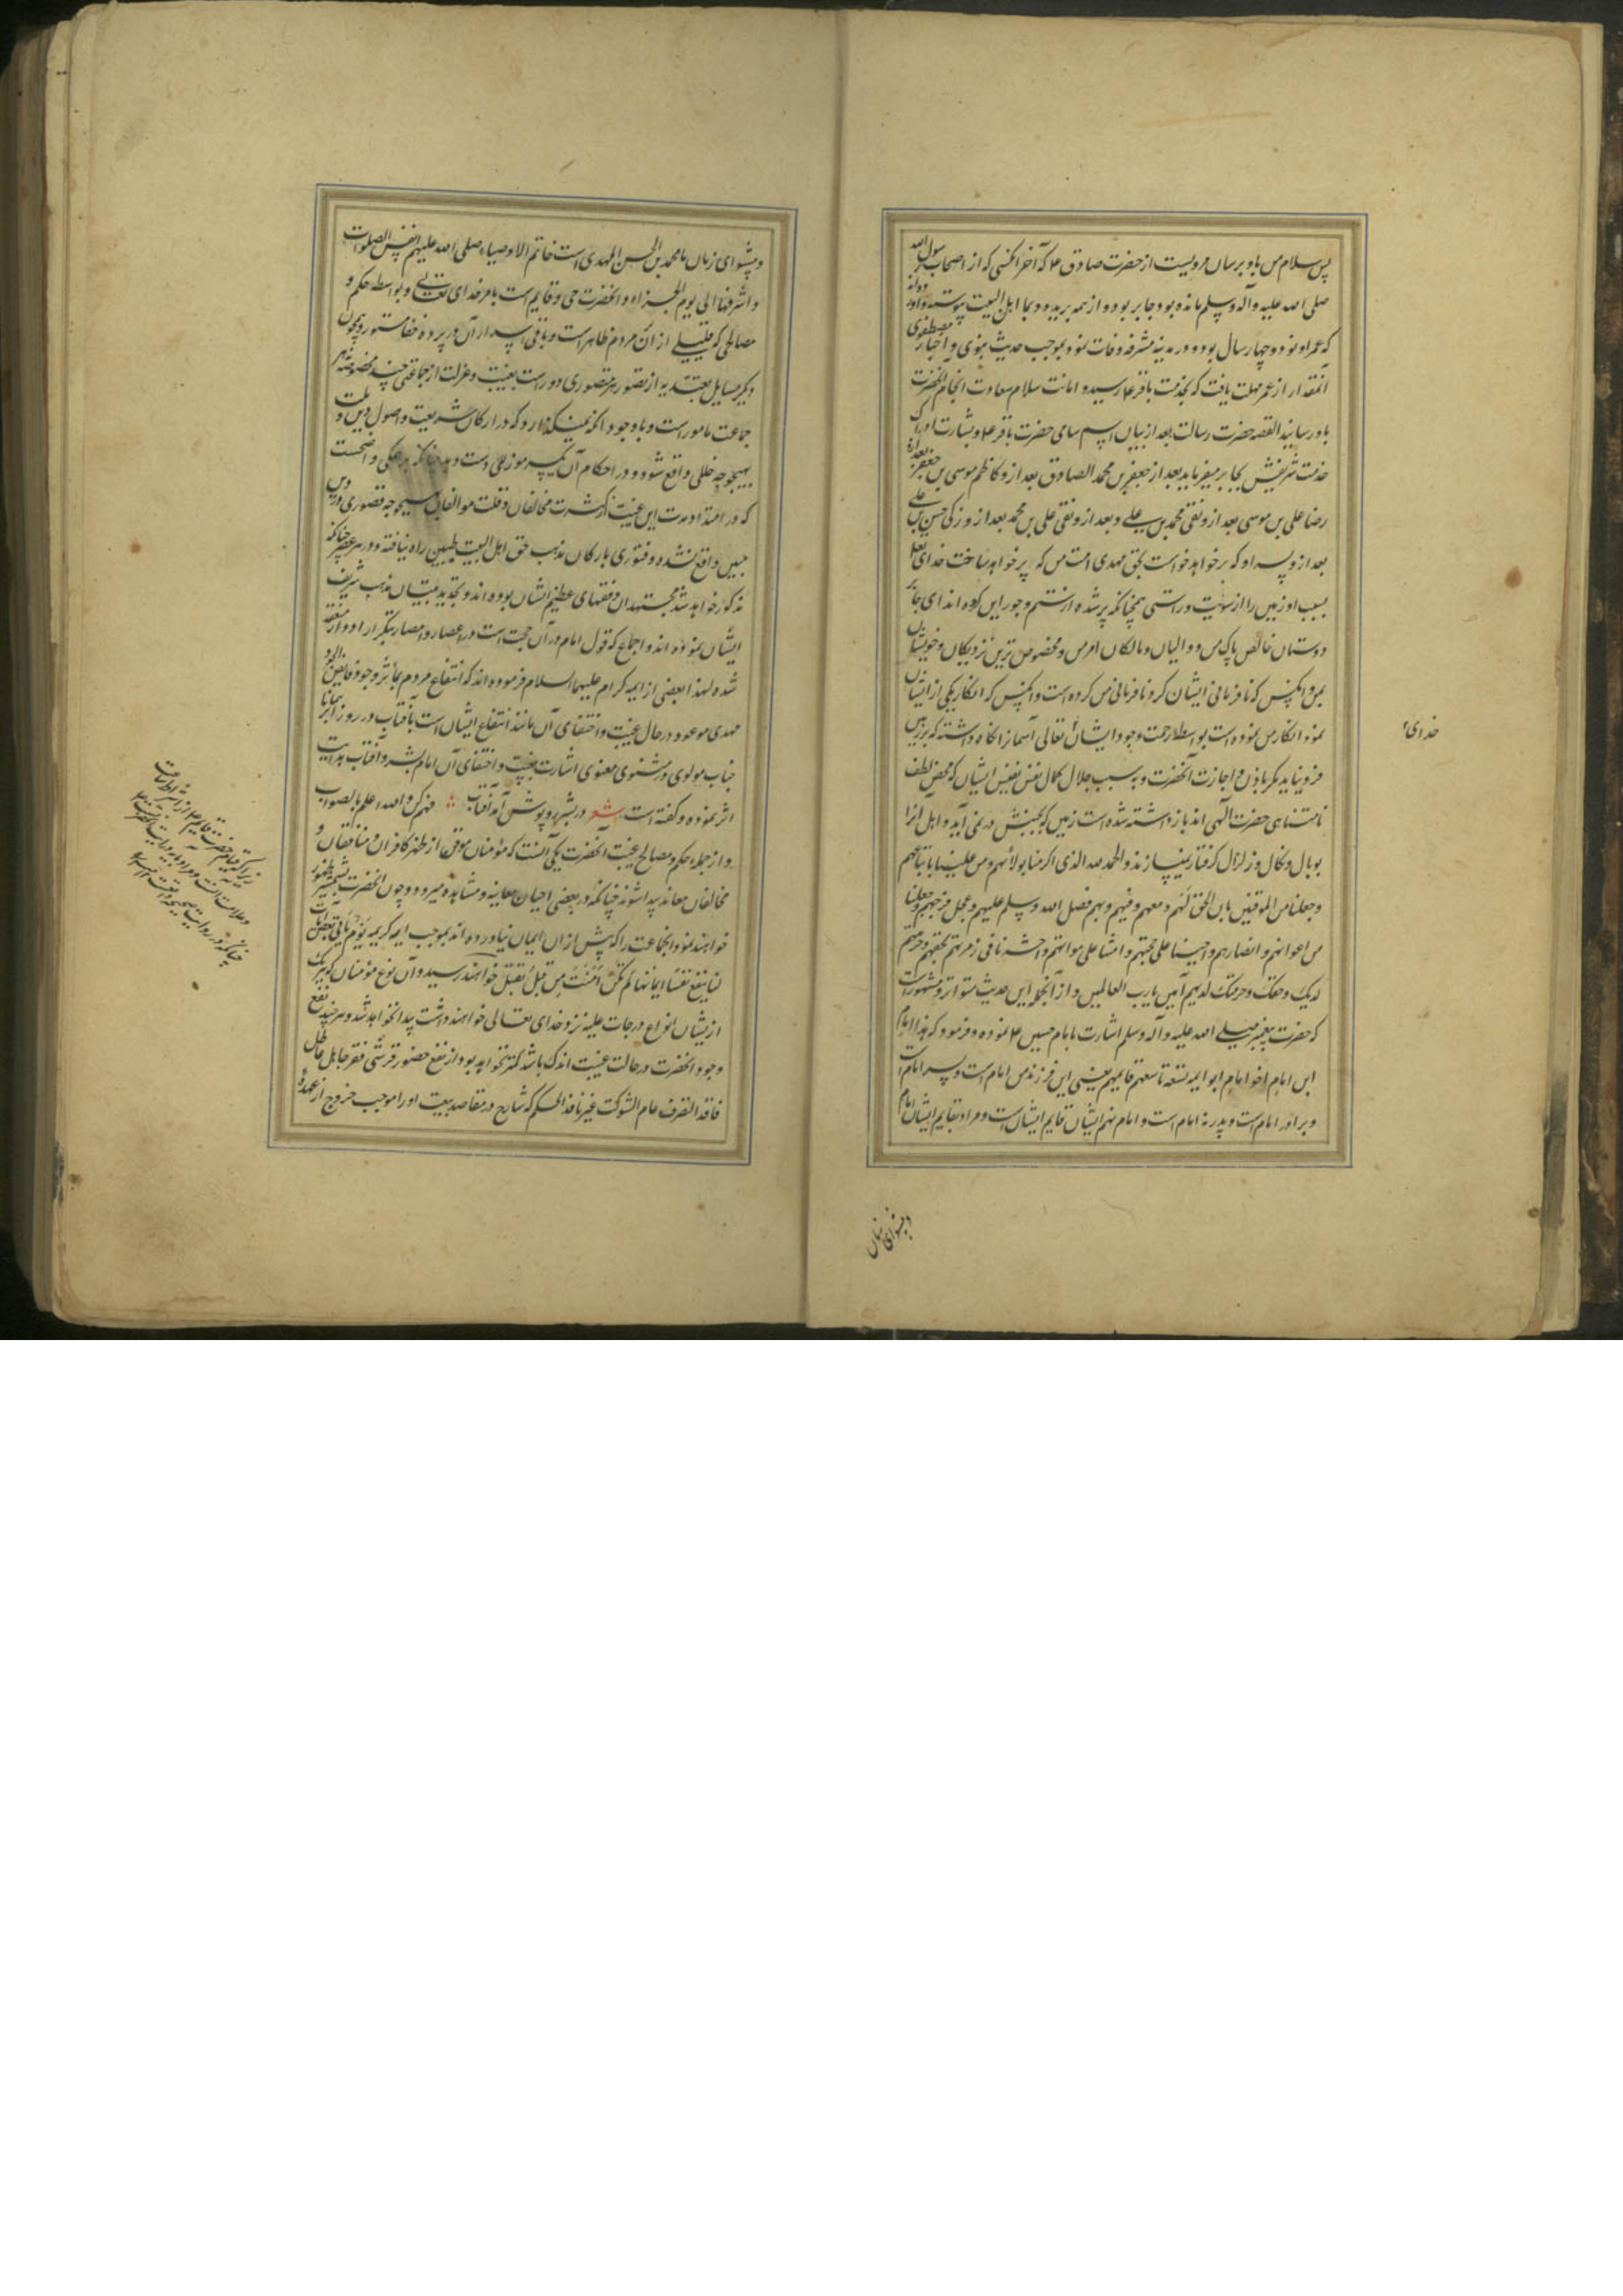 پس سلام من باو برسان مرویست از حضرت صادق ع که آخر انکسی که از اصحاب رسول الله
صلی الله علیه وآله وسلم مانده بود جابر بود و از همه بریده و بما اهل البیت پیوسته
که عمر او نود و چهار سال بود و در مدینه مشرفه وفات نمود بموجب حدیث نبوی و اخبار مصطفوی
آنمقدار از عمر مهلت یافت که بخدمت باقر ع رسید و امانت سلام سعادت انجام انحضرت
باو رسانید القصه حضرت رسالت بعد از بیان اسم سامی حضرت باقر ع و بشارت ادراک
خدمت شریفش بجابر میفرماید بعد از جعفر بن محمد الصادق بعد ازو کاظم موسی بن جعفر بعد ازو
رضا علی بن موسی بعد ازو تقی محمد بن علی و بعد ازو نقی علی بن محمد بعد ازو زکی حسن بن علی
بعد ازو پسر او که بر خواهد خواست بحق مهدی امت من که پر خواهد ساخت خدای تعالی
بسبب او زمین را از سویت و راستی همچنانکه پر شده از ستم و جور این گروه اند ای جابر
دوستان خالص پاک من و والیان و مالکان امر من و مخصوص ترین نزدیکان و خویشان
بمن و انکس که نافرمانی ایشان کرد نافرمانی من کرده است و انکس که انکار یکی از ایشان
نمود انکار من نموده است بواسطه رحمت وجود ایشان تعالی آسمانرا نگاه داشته که بر زمین
خدای
فرو نیاید مگر باذن و اجازت آنحضرت و به سبب جلال کمال نفس نفیس ایشان که محض لطف
نامتناهی حضرت الهی اند باز داشته شده است زمین که بجنبش در نمی آید و اهل انرا
بوبال و نکال و زلزال گرفتار نمیسازند والحمد لله الذی اکرمنا بولائهم ومن علینا باتباعهم
وجعلنا من الموقنین بان الحق لهم ومعهم وفیهم وبهم فصل الله وسلم علیهم وعجل فرجهم وجعلنا
من اعوانهم وانصارهم واحیینا علی محبتهم وامتنا علی موالاتهم واحشرنا فی زمرتهم بحقهم وحرمتهم
لدیک وحقک وحرمتک لدیهم آمین یا رب العالمین و از آنجمله این حدیث متواتر و مشهورست
که حضرت پیغمبر صلی الله علیه وآله وسلم اشارت بامام حسین ع نموده و فرمود که هذا امام
ابن امام اخو امام ابو ایمه تسعة تاسعهم قایمهم یعنی این فرزند من امام است و پسر امام است
و برادر امام است و پدر نه امام است و امام نهم ایشان قایم ایشان است و مراد بقایم ایشان امام
و پیشوای زمان
و پیشوای زمان ما محمد بن الحسن المهدی است خاتم الاوصیاء صلی الله علیهم انفس الصلوات
و اشرفها الی یوم الجزاء و انحضرت حی و قایم است بامر خدای تعالی و بواسطه حکم و
مصالحی که قلیلی از آن مردم ظاهر است و باقی اسرار آن در پرده خفا مستور و همچون
دیگر مسایل تعبدیه از تصور هر متصوری دور است بغیبت و عزلت از جماعتی چند
جماعت مامور است و با وجود انکه نمیگذارد که در ارکان شریعت و اصول دین و ملت
بهیچوجه خللی واقع شود و در احکام آن یکسر موز علی دست دهد چنانکه بر همکی واضحست
که در امتداد مدت این غیبت از کثرت مخالفان و قلت موالفان بهیچوجه قصوری در دین
مبین واقع نشده و فتوری بارکان مذهب حق اهل البیت طیبین راه نیافته و در هر عصر چنانکه
مذکور خواهد شد مجتهدان و فقهای عظیم الشان بوده اند و تجدید مبتیان مذهب شریف
ایشان نموده اند و اجماع که قول امام در آن حجت است در اعصار و امصار بتکرار ازو منعقد
شده لهذا بعضی از ایمه کرام علیهم السلام فرموده اند که انتفاع مردم بمآثر وجود فایض الجود
مهدی موعود در حال غیبت و اختفای آن مانند انتفاع ایشان است بآفتاب در روز ابر همانا
جناب مولوی در مثنوی معنوی اشارت بغیبت و اختفای آن امام بشر و آفتاب هدایت
اثر نموده و گفته است شعر در بشر روپوش آمد آفتاب فهم کن والله اعلم بالصواب
و از جمله حکم و مصالح غیبت آنحضرت یکی آنست که مؤمنان موقن از ظهر کافران و منافقان و
مخالفان معاند پیدا شوند چنانکه در بعضی احیان معاینه و مشاهده میرود و چون انحضرت بشمشیر ظهور
خواهند نمود انجماعت را که پیش از ان ایمان نیاورده اند بموجب ایه کریمه یوم یأتی بعض آیات
لا ینفع نفسا ایمانها لم تکن آمنت من قبل بقتل خواهند رسید و آن نوع مؤمنان که هر یک
ازیشان انواع درجات علیه نزد خدای تعالی خواهند داشت پیدا نخواهد شد و هر چند نفع
وجود انحضرت در حالت غیبت اندک باشد کمتر نخواهد بود از نفع حضور قرشی فقر جاهل عاطل
فاقد التصرف عام الشوکت غیر نافذ الحکم که شارح در مقاصد بیعت او را موجب خروج از عهده
زیرا که قیام حضرت قایم ع از اشراط ساعت
و علامات انست